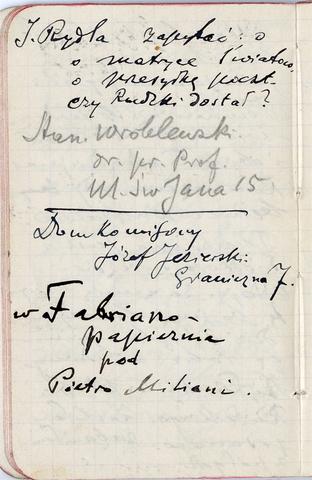 J. Rydla zapytać: o
o matryce światów.
o przesyłkę poczt.
czy Rudzki dostał?
Stan. Wróblewski
dr. pr. Prof.
Ul. Św Jana 15
Dom Komisowy
Józef Jezierski
Graniczna 7.
w Fabriano –
papiernia
pod
Pietro Miliani.